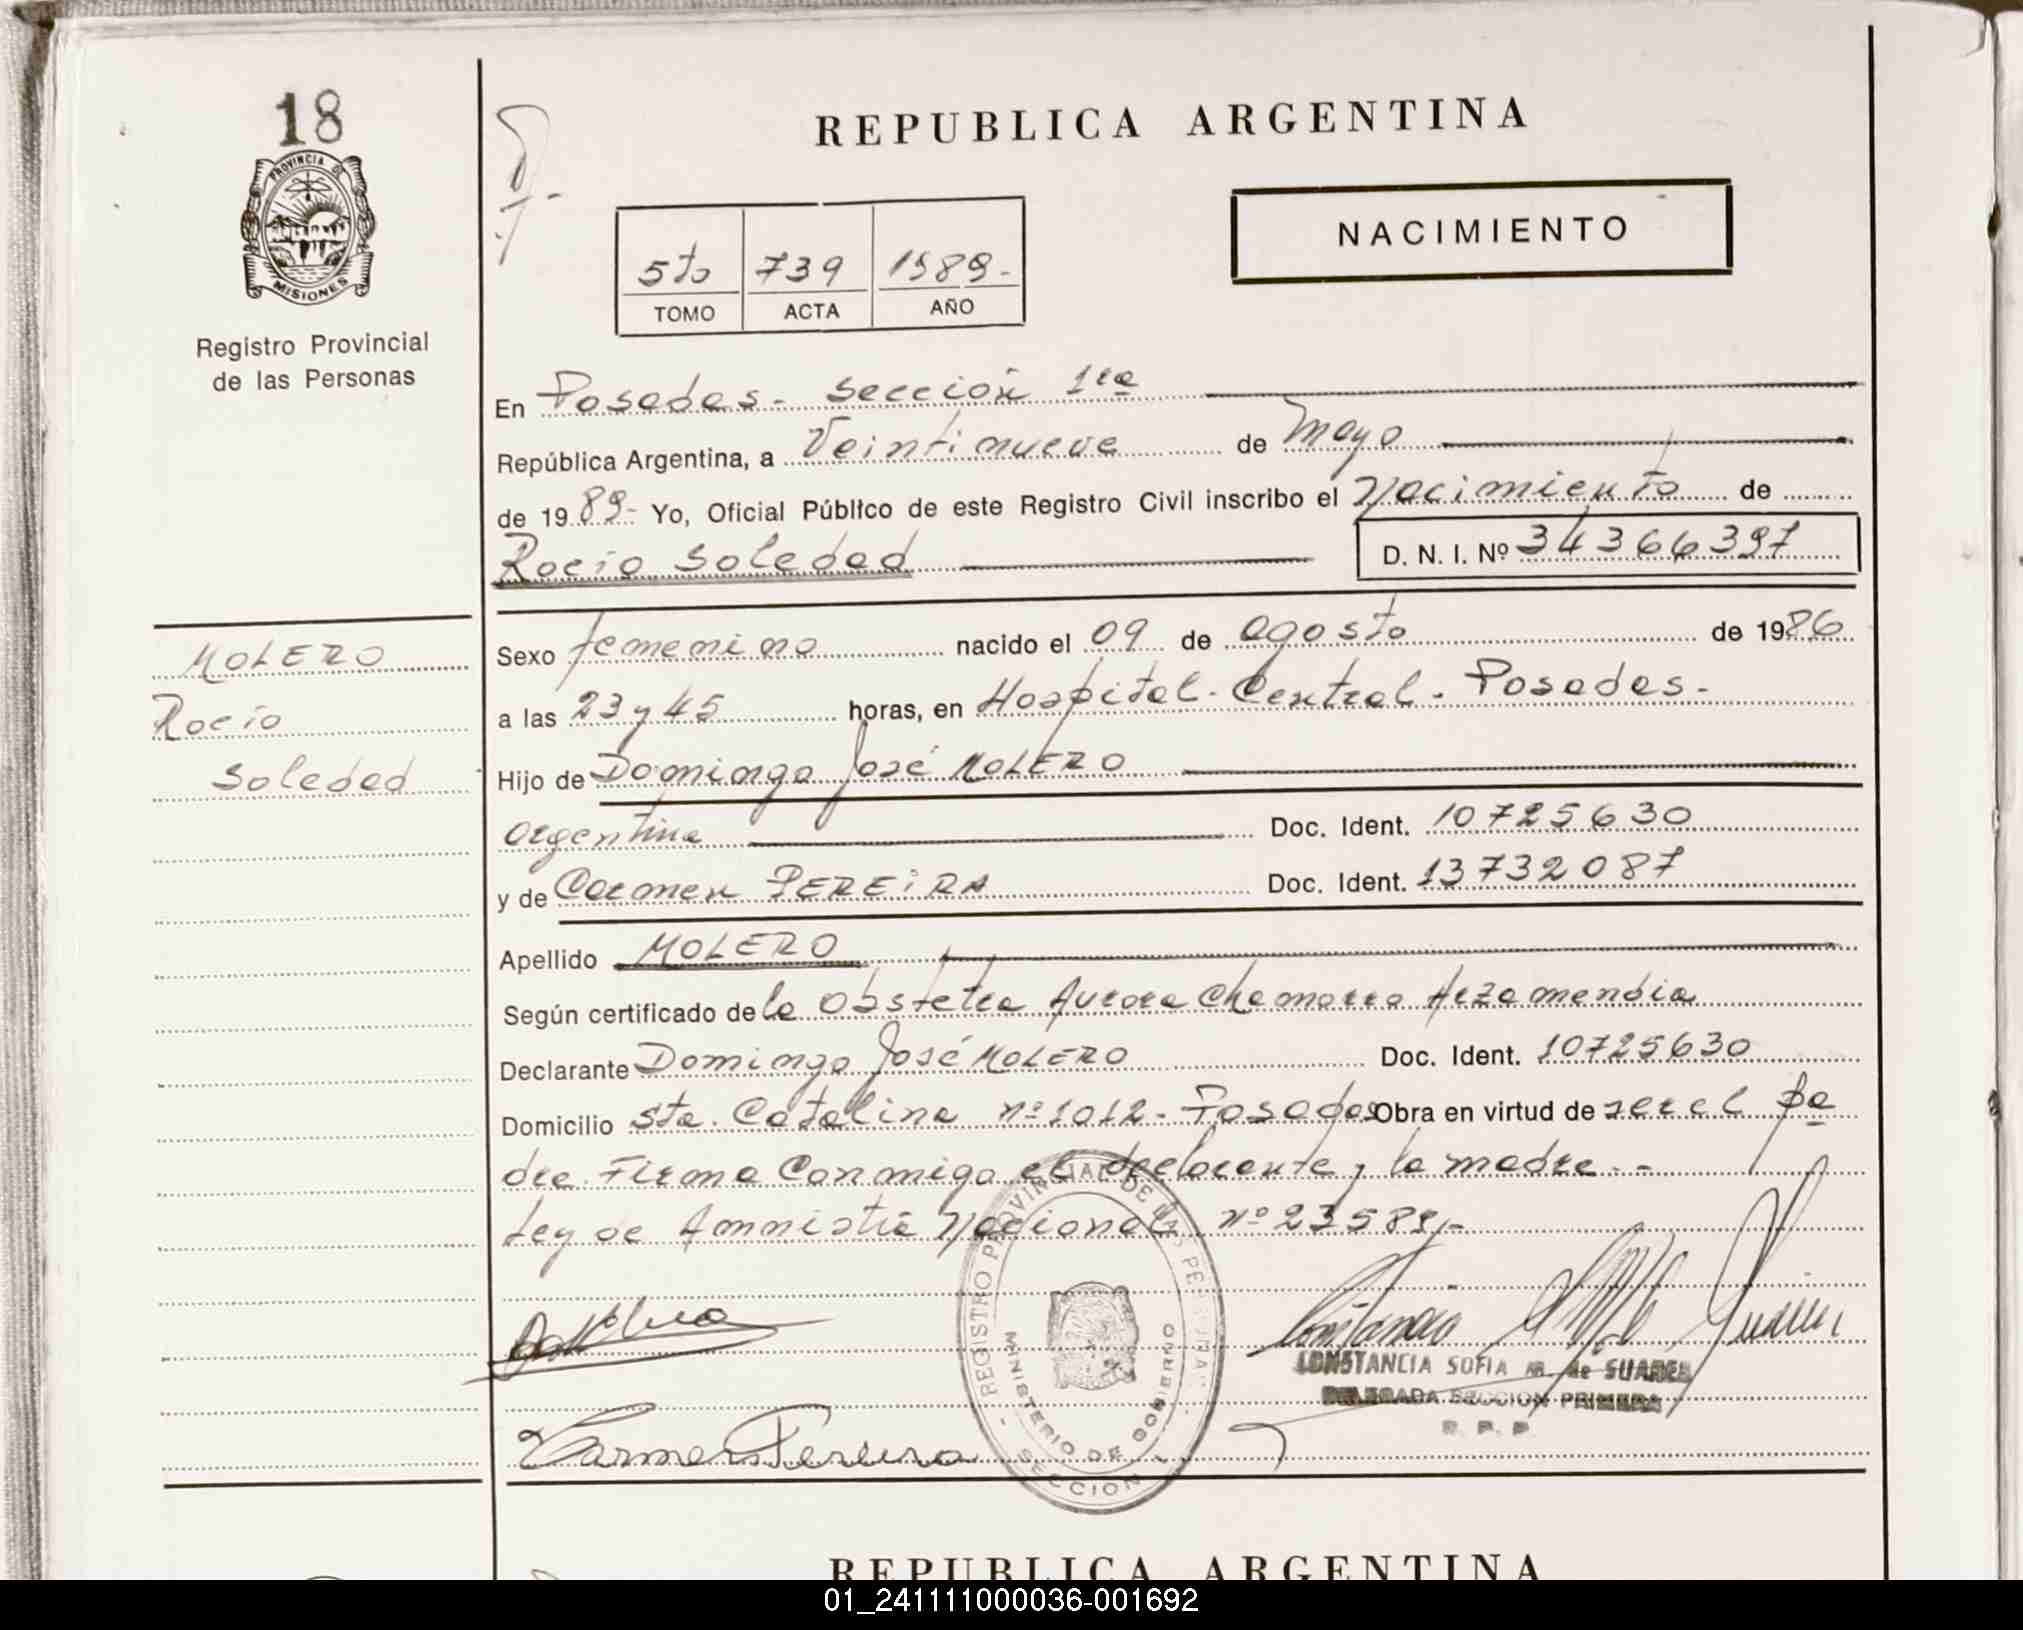 18
PROVINCIA DE
MISIONES
Registro Provincial
de las Personas
MOLERO
Rocío
Soledad
REPUBLICA ARGENTINA
NACIMIENTO
5to 739 1989-
TOMO ACTA AÑO
En Posadas - Sección 1ra
República Argentina, a Veintinueve de Mayo
de 1989- Yo, Oficial Público de este Registro Civil inscribo el Nacimiento de
Rocío Soledad D. N. I. Nº 34366397
Sexo femenino nacido el 09 de agosto de 1986
a las 23 y 45 horas, en Hospital Central - Posadas-
Hijo de Domingo José MOLERO
argentino Doc. Ident. 10725630
y de Carmen PEREIRA Doc. Ident. 13732087
Apellido MOLERO
Según certificado de la Obstetra Aurora Chamorro Arzamendia
Declarante Domingo José MOLERO Doc. Ident. 10725630
Domicilio Sta. Catalina nº 1012 - Posadas Obra en virtud de ser el pa
dre. Firma Conmigo el declarante y la madre.-
Ley de Amnistia Nacional nº 23.589.-
REGISTRO PROVINCIAL DE LAS PERSONAS
MINISTERIO DE GOBIERNO
SECCION 1
CONSTANCIA SOFIA M. de SUAREZ
DELEGADA SECCION PRIMERA
R. P. P.
Carmen Pereira
REPUBLICA ARGENTINA
01_241111000036-001692